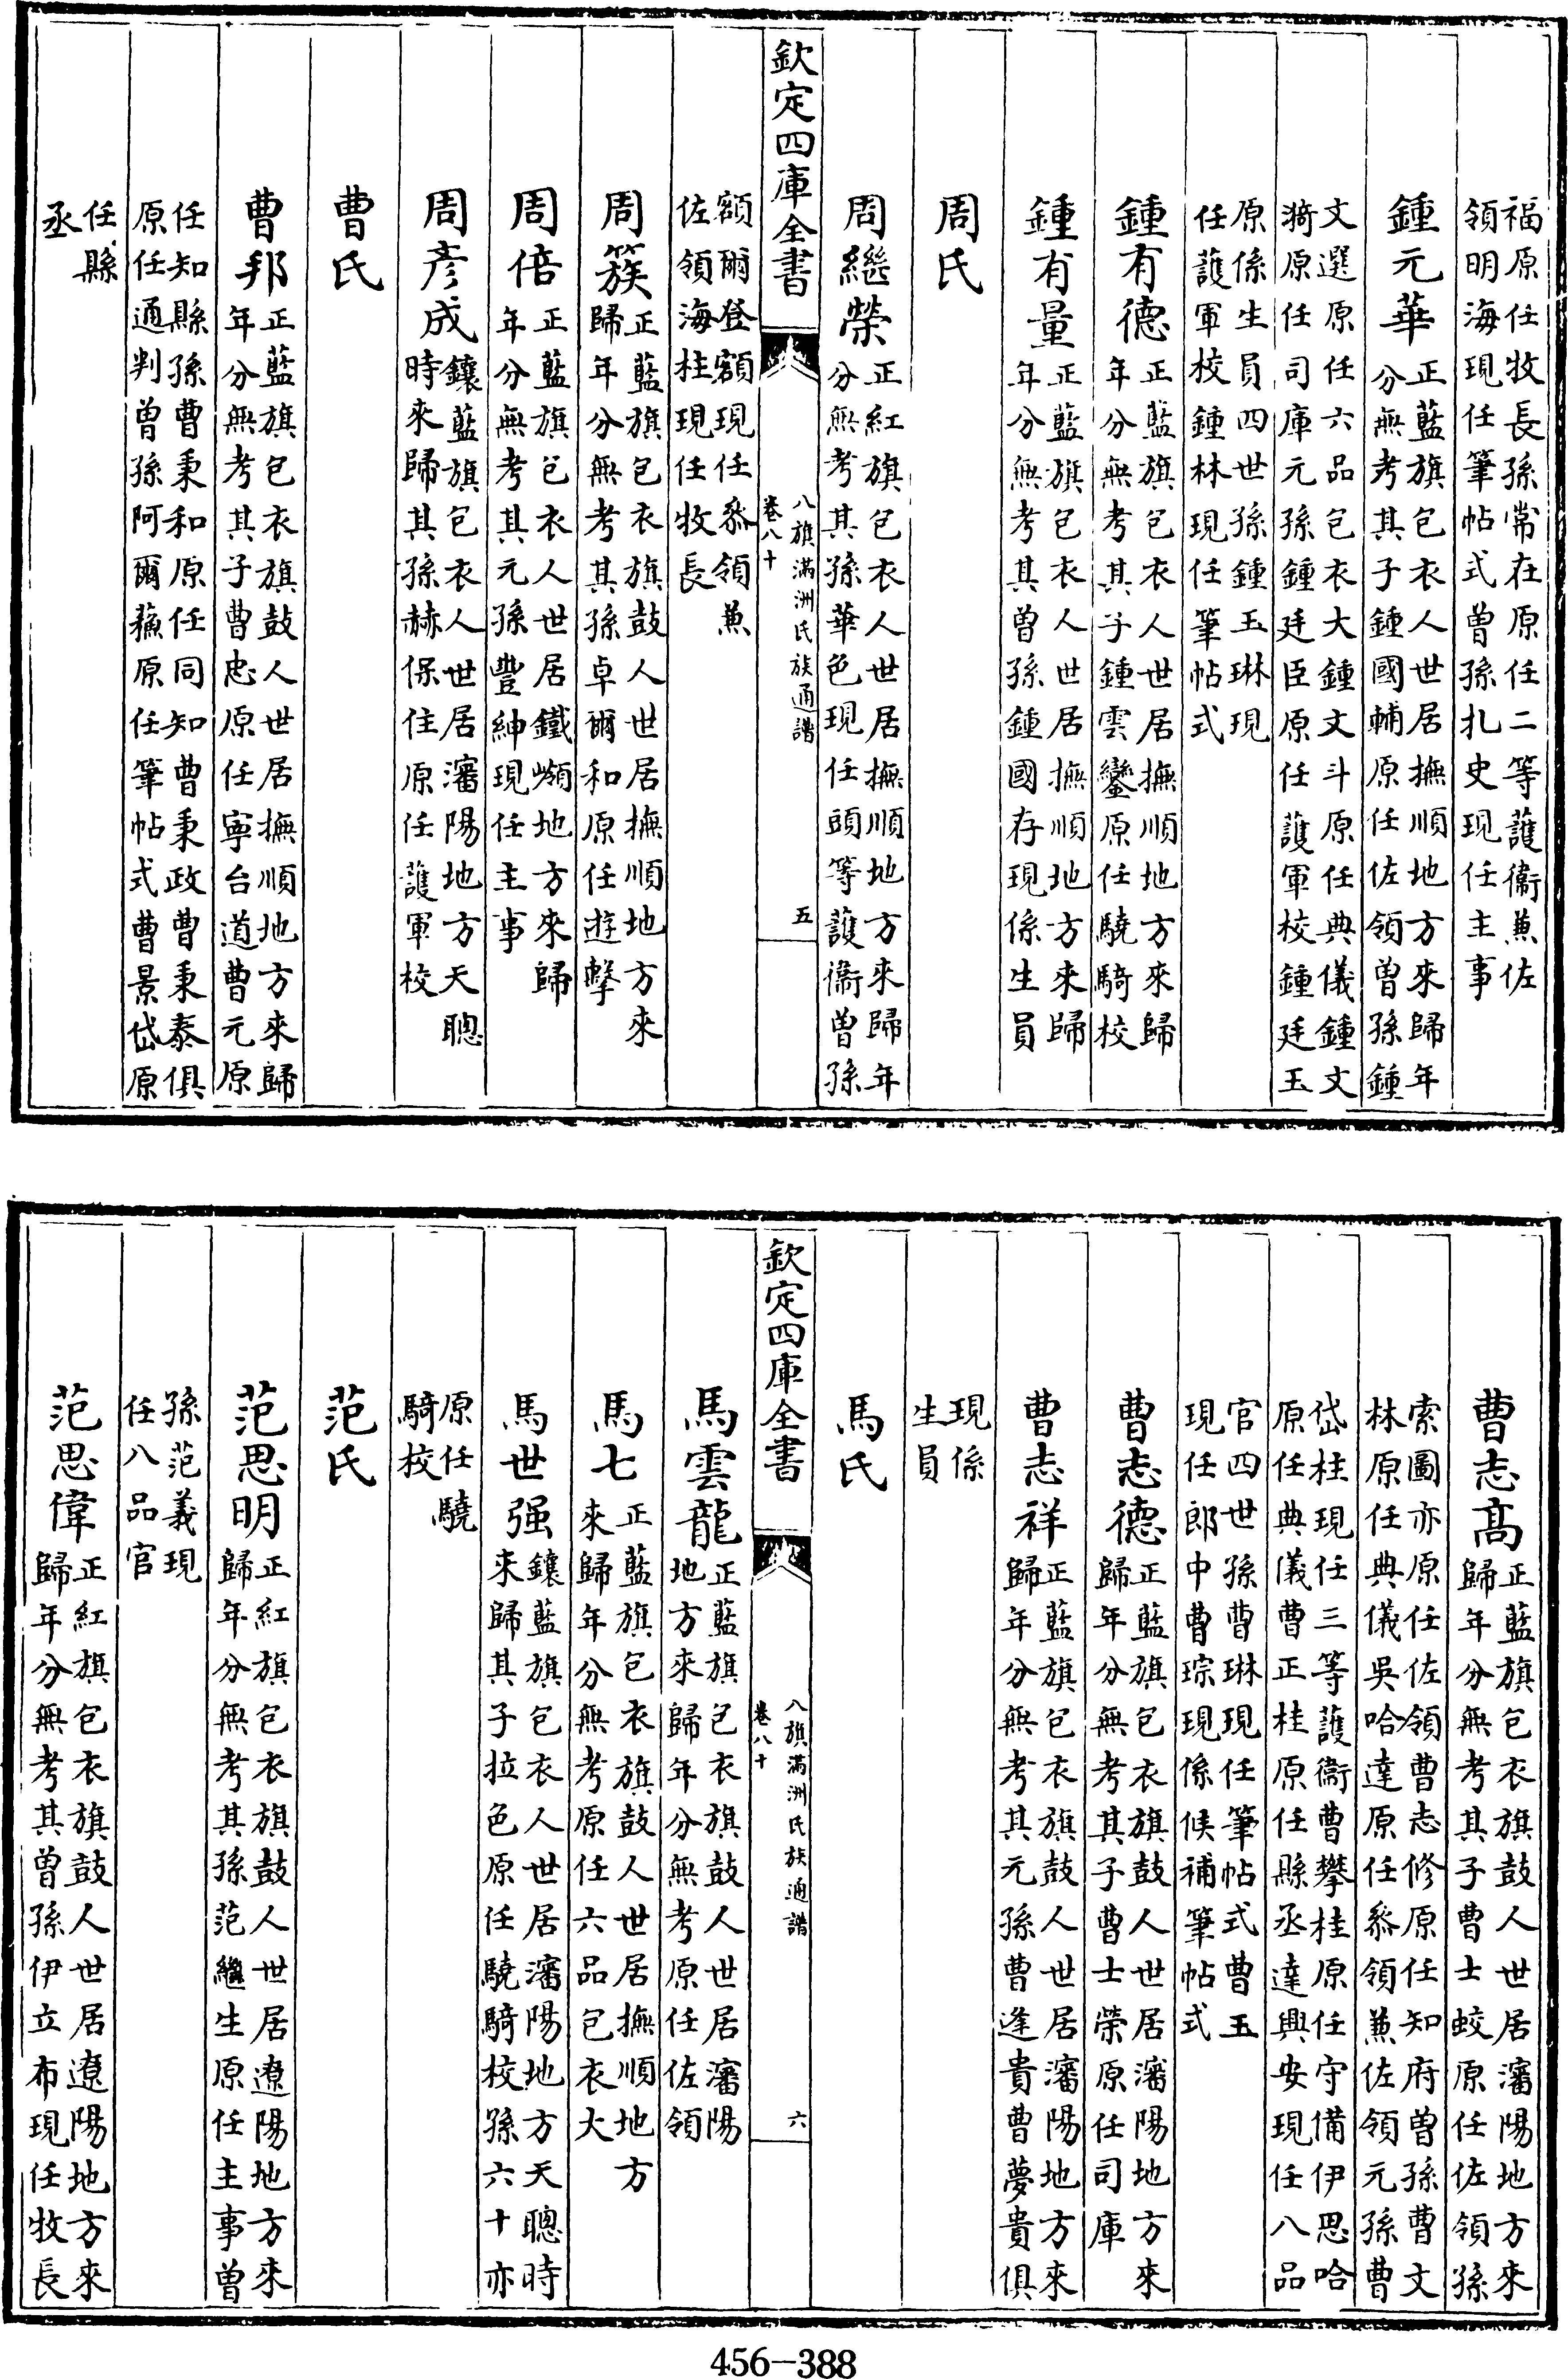 福原任牧長孫常在原任二等護衛兼佐
領明海現任筆帖式曾孫扎史現任主事
鍾元華正藍旗包衣人世居撫順地方來歸年
分無考其子鍾國輔原任佐領曾孫鍾
文選原任六品包衣大鍾文斗原任典儀鍾文
漪原任司庫元孫鍾廷臣原任護軍校鍾廷玉
原係生員四世孫鍾玉琳現
任護軍校鍾林現任筆帖式
鍾有德正藍旗包衣人世居撫順地方來歸
年分無考其子鍾雲鑾原任驍騎校
鍾有量正藍旗包衣人世居撫順地方來歸
年分無考其曾孫鍾國存現係生員
周氏
周繼榮正紅旗包衣人世居撫順地方來歸年
分無考其孫華色現任頭等護衛曾孫
欽定四庫全書
八旗滿洲氏族通譜
卷八十
五
額爾登額現任叅領兼
佐領海柱現任牧長
周簇正藍旗包衣旗鼓人世居撫順地方來
歸年分無考其孫卓爾和原任遊擊
周倍正藍旗包衣人世居鐵嶺地方來歸
年分無考其元孫豐紳現任主事
周彥成鑲藍旗包衣人世居瀋陽地方天聰
時來歸其孫赫保住原任護軍校
曹氏
曹邦正藍旗包衣旗鼓人世居撫順地方來歸
年分無考其子曹忠原任寧台道曹元原
任知縣孫曹秉和原任同知曹秉政曹秉泰俱
原任通判曾孫阿爾蘓原任筆帖式曹景岱原
任縣
丞
曹志高正藍旗包衣旗鼓人世居瀋陽地方來
歸年分無考其子曹士蛟原任佐領孫
索圖亦原任佐領曹志修原任知府曾孫曹文
林原任典儀吳哈達原任叅領兼佐領元孫曹
岱柱現任三等護衛曹攀桂原任守備伊思哈
原任典儀曹正桂原任縣丞達興安現任八品
官四世孫曹琳現任筆帖式曹玉
現任郎中曹琮現係候補筆帖式
曹志德正藍旗包衣旗鼓人世居瀋陽地方來
歸年分無考其子曹士榮原任司庫
曹志祥正藍旗包衣旗鼓人世居瀋陽地方來
歸年分無考其元孫曹逢貴曹夢貴俱
現係
生員
馬氏
欽定四庫全書
八旗滿洲氏族通譜
卷八十
六
馬雲龍正藍旗包衣旗鼓人世居瀋陽
地方來歸年分無考原任佐領
馬七正藍旗包衣旗鼓人世居撫順地方
來歸年分無考原任六品包衣大
馬世强鑲藍旗包衣人世居瀋陽地方天聰時
來歸其子拉色原任驍騎校孫六十亦
原任驍
騎校
范氏
范思明正紅旗包衣旗鼓人世居遼陽地方來
歸年分無考其孫范繼生原任主事曾
孫范義現
任八品官
范思偉正紅旗包衣旗鼓人世居遼陽地方來
歸年分無考其曾孫伊立布現任牧長
456-388